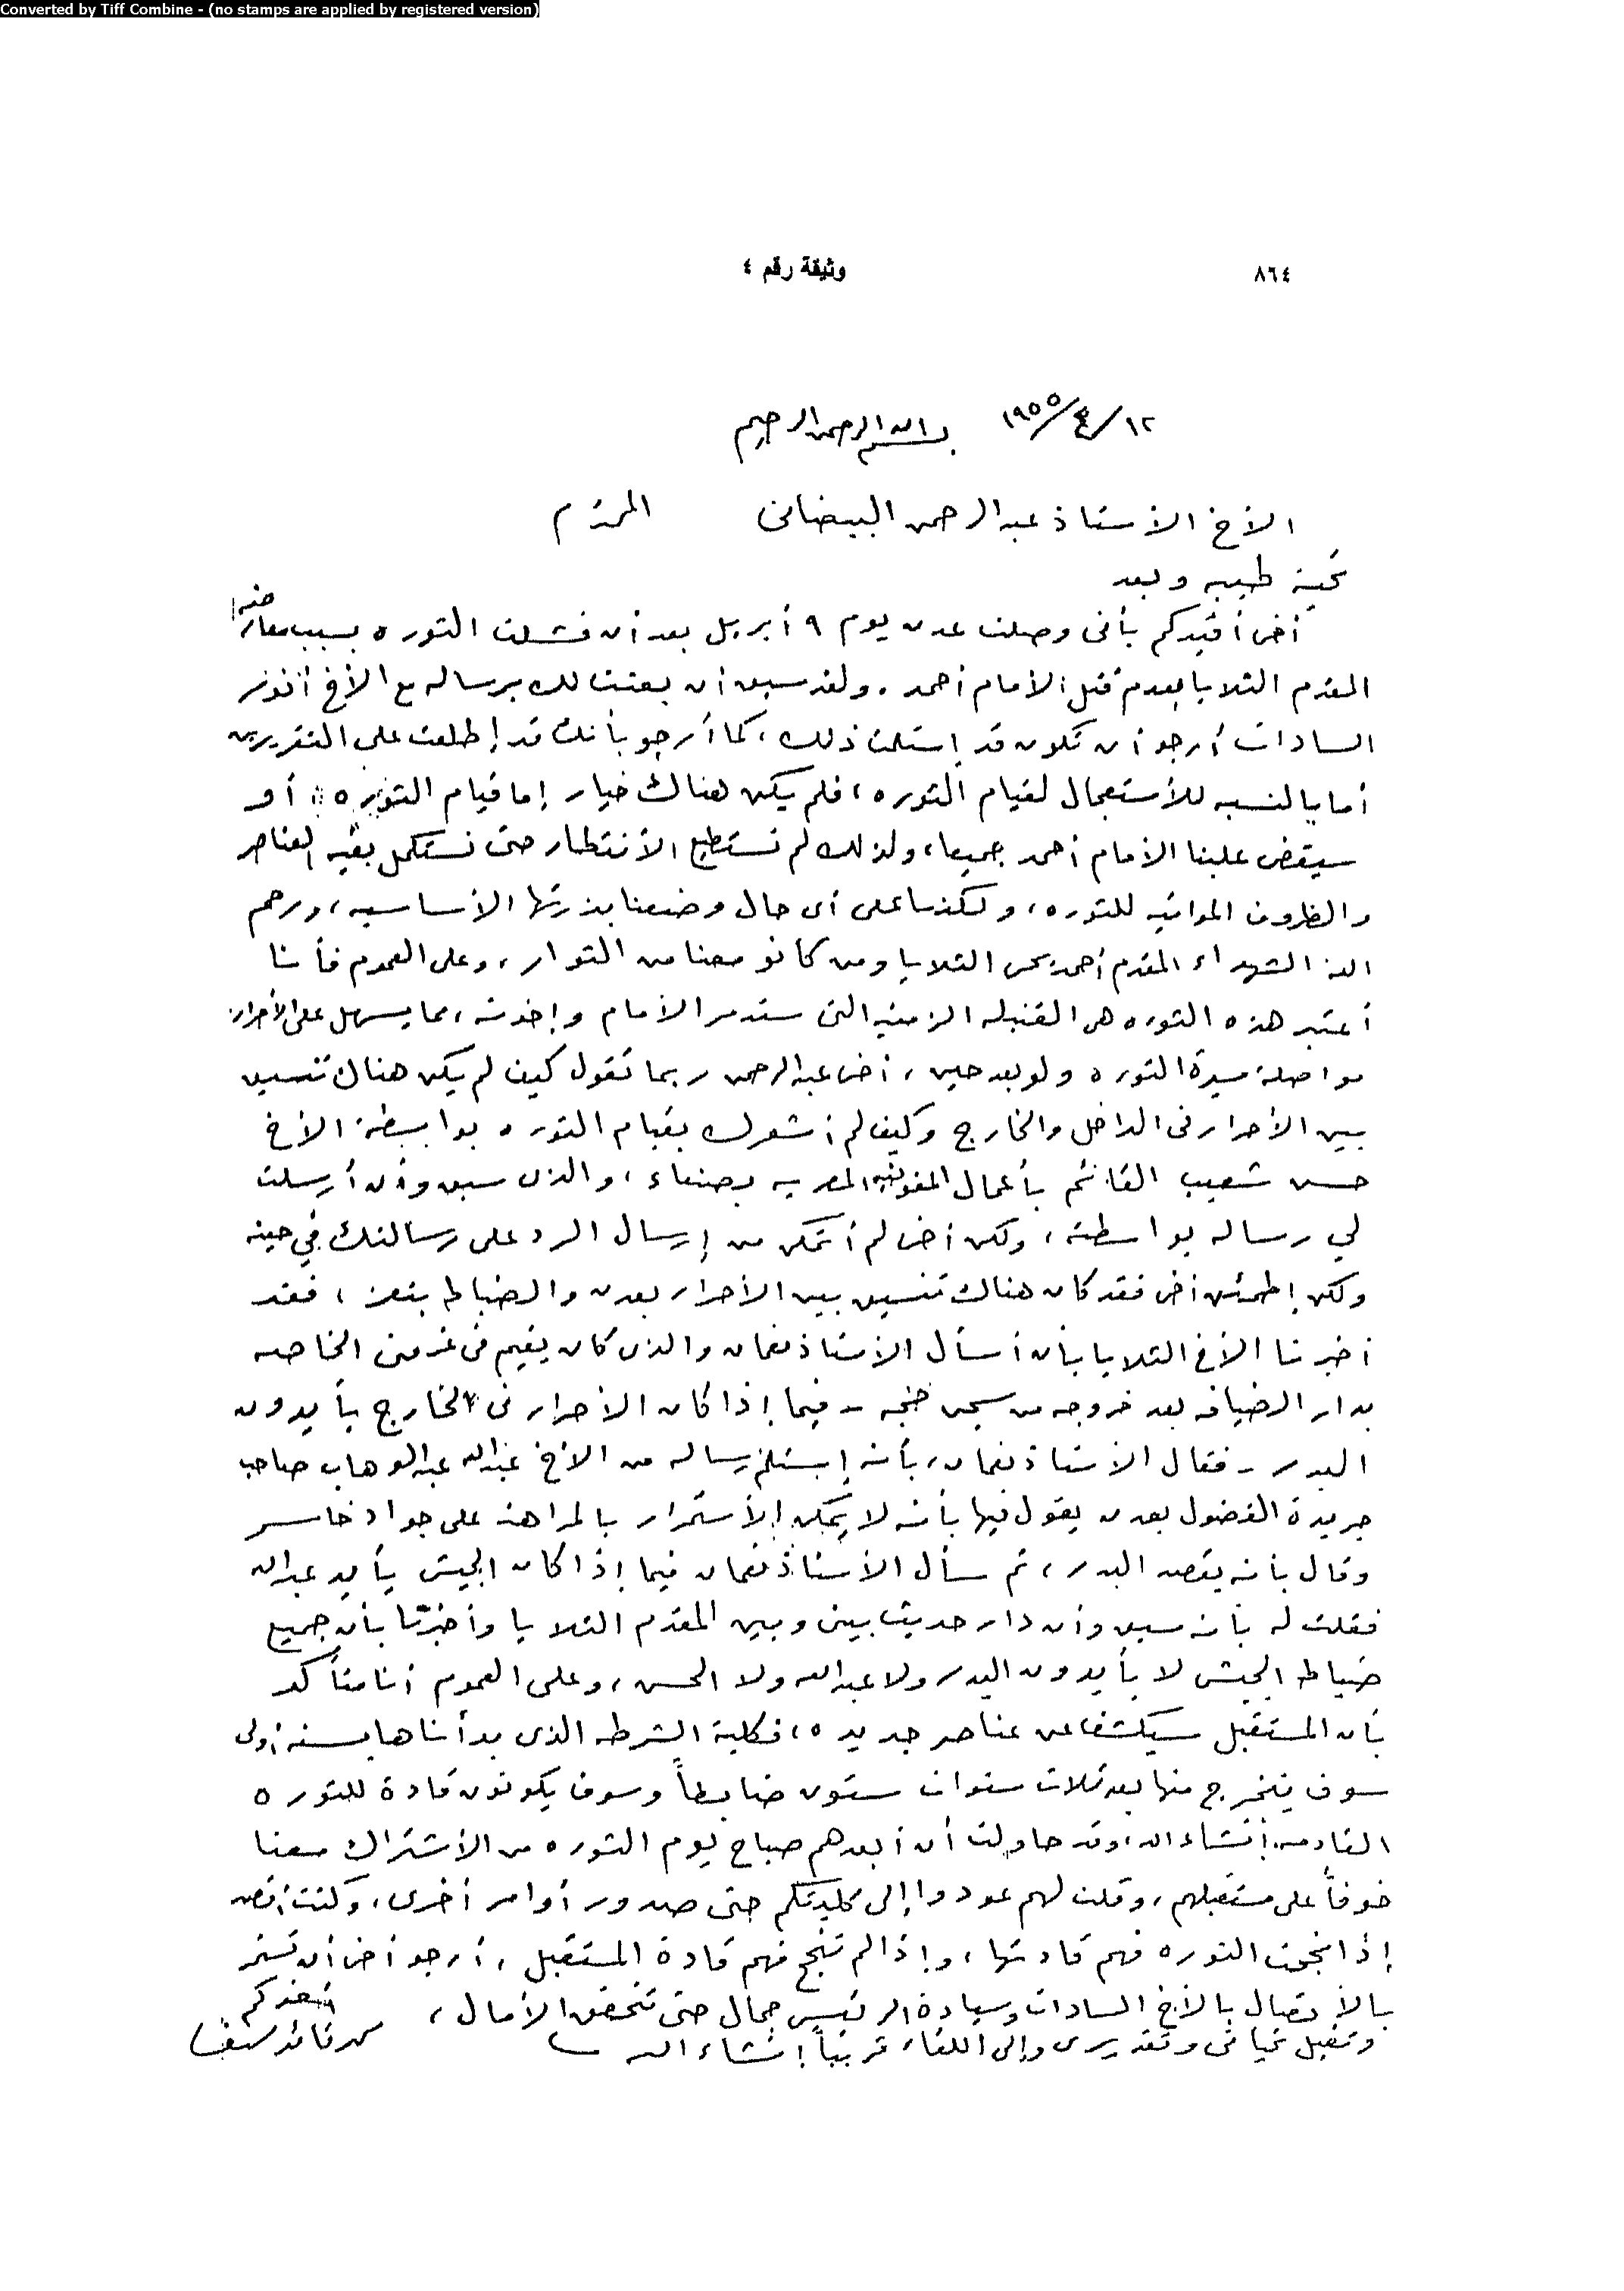 Converted by Tiff Combine - (no stamps are applied by registered version)
٨٦٤
وثيقة رقم ٤
١٢/٤/١٩٥٥ بسم الله الرحمن الرحيم
الأخ الأستاذ عبدالرحمن البيضانى المحترم
تحية طيبه وبعد
أخى أفيدكم بأنى وصلت عدن يوم ٩ أبريل بعد أن فشلت الثوره بسبب معارضة
المقدم الثلايا بعدم قتل الأمام أحمد . ولقد سبق أن بعثت لك برساله مع الأخ أنور
السادات أرجو أن تكون قد إستلمت ذلك ، كما أرجو بأنك قد إطلعت على التقريرين
أما بالنسبه للأستعجال لقيام الثوره ، فلم يكن هناك خيار إما قيام الثوره أو
سيقضى علينا الأمام أحمد جميعا ، ولذلك لم نستطيع الأنتظار حتى نستكمل بقية العناصر
والظروف المواتيه للثوره ، ولكننا على أى حال وضعنا بذرتها الأساسيه ، ورحم
الله الشهداء المقدم أحمد يحى الثلايا ومن كانو معنا من الثوار ، وعلى العموم فأنا
أعتبر هذه الثوره هى القنبله الزمنيه التى ستدمر الأمام وإخوته ، مما يسهل على الأحرار
مواصلة مسيرة الثوره ولو بعد حين ، أخى عبدالرحمن ربما تقول كيف لم يكن هناك تنسيق
بين الأحرار فى الداخل والخارج وكيف لم أشعرك بقيام الثوره بواسطة الأخ
حسن شعيب القائم بأعمال المفوضيه المصريه بصنعاء ، والذى سبق وأن أرسلت
لي رساله بواسطته ، ولكن أخى لم أتمكن من إرسال الرد على رسالتك في حينه
ولكن إطمئن أخى فقد كان هناك تنسيق بين الأحرار بعدن والضباط بتعز ، فقد
أخبرنا الأخ الثلايا بأن أسأل الأستاذ نعمان والذى كان يقيم فى غرفتى الخاصه
بدار الضيافه بعد خروجه من سجن حجه - فيما إذا كان الأحرار فى الخارج يأيدون
البدر - فقال الأستاذ نعمان ، بأنه إستلم رساله من الأخ عبدالله عبدالوهاب صاحب
جريدة الفضول بعدن يقول فيها بأنه لا يمكن الأستمرار بالمراهنه على جواد خاسر
وقال بأنه يقصد البدر ، ثم سأل الأستاذ نعمان فيما إذا كان الجيش يأيد عبدالله
فقلت له بأنه سبق وأن دار حديث بينى وبين المقدم الثلايا وأخبرنا بأن جميع
ضباط الجيش لا يأيدون البدر ولا عبدالله ولا الحسن ، وعلى العموم أنا متأكد
بأن المستقبل سيكشف عن عناصر جديده ، فكلية الشرطه الذى بدأناها بسنه أولى
سوف يتخرج منها بعد ثلاث سنوات ستون ضابطاً وسوف يكونون قادة للثوره
القادمه إنشاء الله ، وقد حاولت أن أبعدهم صباح يوم الثوره من الأشتراك معنا
خوفاً على مستقبلهم ، وقلت لهم عودوا إلى كليتكم حتى صدور أوامر أخرى ، وكنت أقصد
إذا نجحت الثوره فهم قادتها ، وإذا لم تنجح فهم قادة المستقبل ، أرجو أخى أن تستمر
بالأتصال بالأخ السادات وسيادة الرئيس جمال حتى تتحقق الأمال ،
وتقبل تحياتى وتقديرى وإلى اللقاء قريباً إنشاء الله
أخوكم
محمد قائد سيف